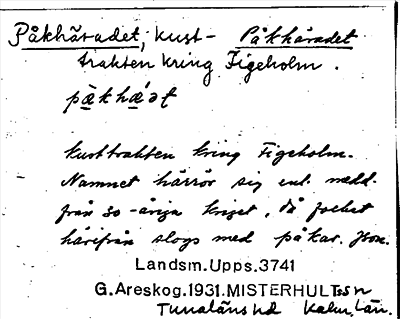 Påkhäradet, kust- Påkhäradet
trakten kring Figeholm.
kusttrakten kring Figeholm.
Namnet härrör sig enl. medd.
från 30-åriga kriget, då folket
härifrån slogs med påkar.
Landsm.Upps.3741
G.Areskog.1931.MISTERHULT sn
Tunaläns hd Kalm. län.